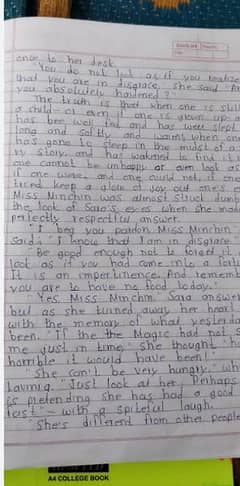 once to her desk.
"You do not look as if you realize
that you are in disgrace, she said "Are
you absolutely hardened?"
"The truth is that when one is still
a child – or even if one is grown up – and
has been well fed, and has slept
long and softly and warm; when one
has gone to sleep in the midst of a
fairy story, and has wakened to find it
one cannot be unhappy or even look as
if one were; and one could not, if one
tried, keep a glow of joy out of one's eyes
Miss Minchin was almost struck dumb
the look of Sara's eyes when she made
perfectly respectful answer.
"I beg your pardon Miss Minchin
said; "I know that I am in disgrace.
"Be good enough not to forget it
look as if you had come into a fortune
It is an impertinence. And remember
you are to have no food today."
"Yes, Miss Minchin," Sara answered
but as she turned away her heart
with the memory of what yesterday
been. "If the Magic had not
me just in time," she thought "how
horrible it would have been!"
"She can't be very hungry," wh
Lavinia. "Just look at her. Perhaps
is pretending she has had a good
fast" – with a spiteful laugh.
"She's different from other people
A4 COLLEGE BOOK